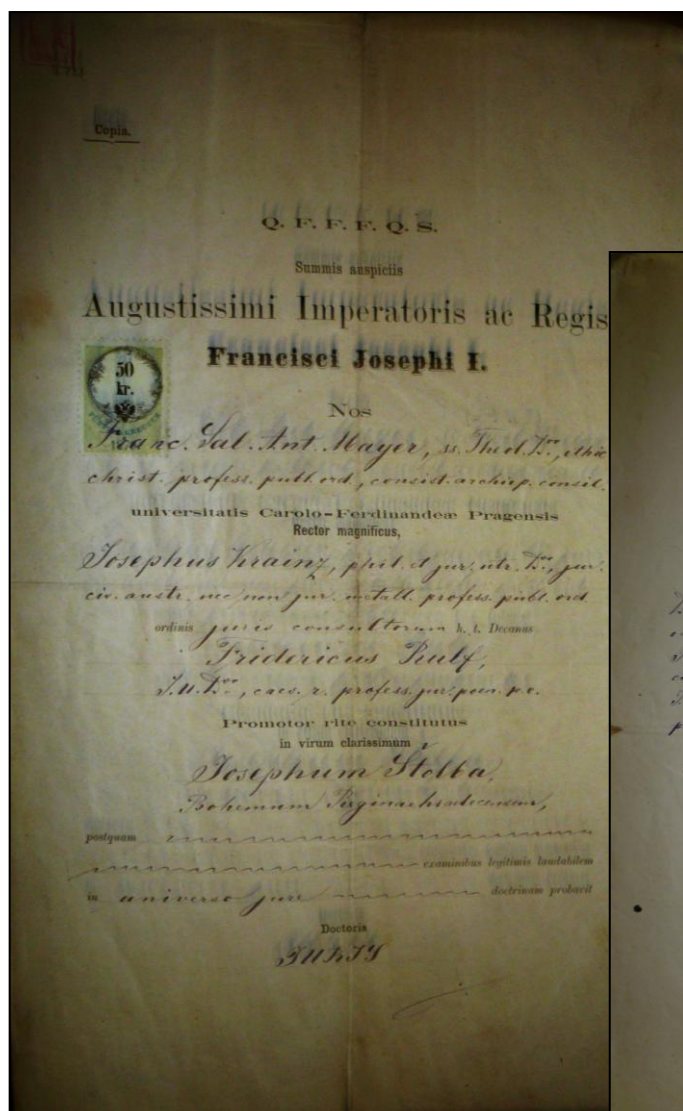 Copia.
Q. F. F. F. Q. S.
Summis auspiciis
Augustissimi Imperatoris ac Regis
Francisci Josephi I.
50
kr.
Nos
Franc. Sal. Ant. Mayer, ss. Theol. Dr., ethic
christ. profess. publ. ord., consist. archiep. consil.
universitatis Carolo-Ferdinandeæ Pragensis
Rector magnificus,
Josephus Krainz, phil. et jur. utr. Dr., jur.
civ. austr. nec non jur. metall. profess. publ. ord
ordinis juris consultorum h. t. Decanus
Fridericus Rulf,
J. U. Dr., caes. r. profess. jur. poen. p. o.
Promotor rite constitutus
in virum clarissimum
Josephum Štolba,
Bohemum
postquam
examinibus legitimis laudabilem
in universo jure doctrinam probavit
Doctoris
JURIS